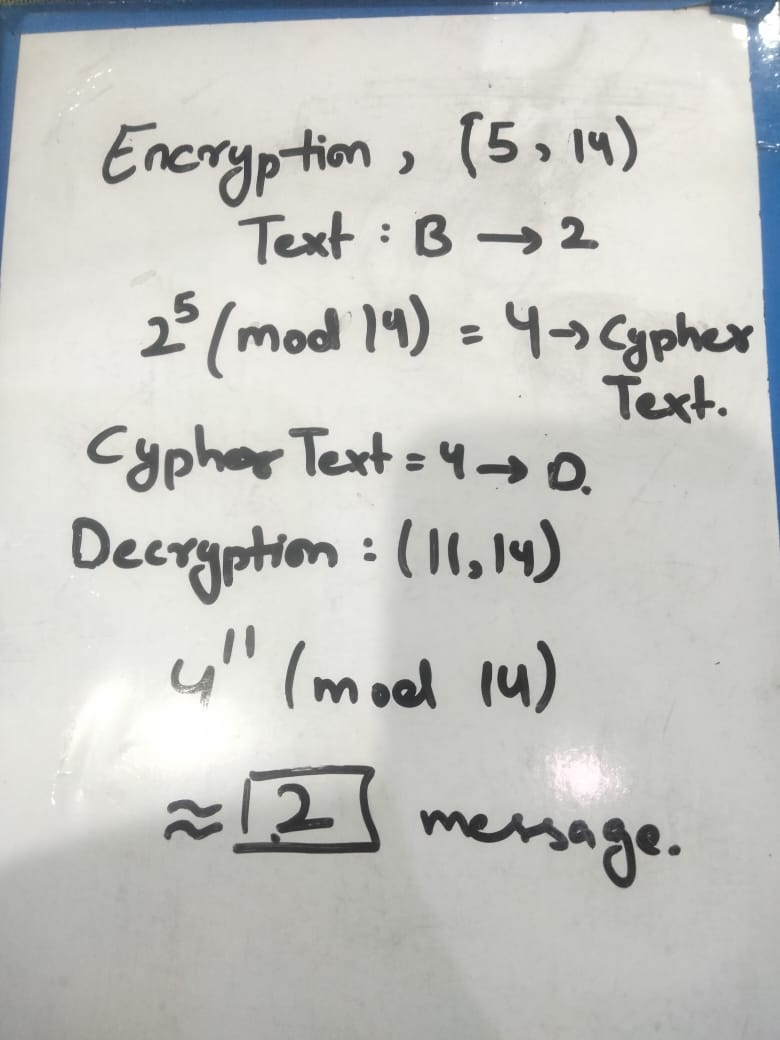 Encryption, (5, 14)
Text : B → 2
2⁵ (mod 14) = 4 → Cypher
Text.
Cypher Text = 4 → D.
Decryption : (11, 14)
4¹¹ (mod 14)
≈ 2 message.